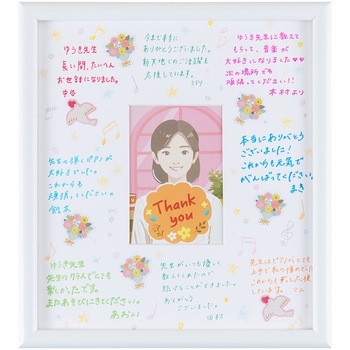 ゆうき先生
長い間、たいへん
お世話になりました。
中谷
今まで本当に
ありがとうございました。
新天地でのご活躍を
応援しています。
ゆうき先生に教えて
もらって、音楽が
大好きになりました♥♥
次の場所でも
頑張ってください!!
木村より
先生の弾くピアノが
大好きでした。
これからも
頑張ってください。
鈴木
Thank
you
本当にありがとう
ございました!
これからも元気で
がんばってください
まき
ゆうき先生
先生のクラスでとても
楽しかったです。
またあそびにきてください。
あおい
先生がいつも優しく
教えてくれたので
ありがとう
ございました。
田村
先生はピアノがとても